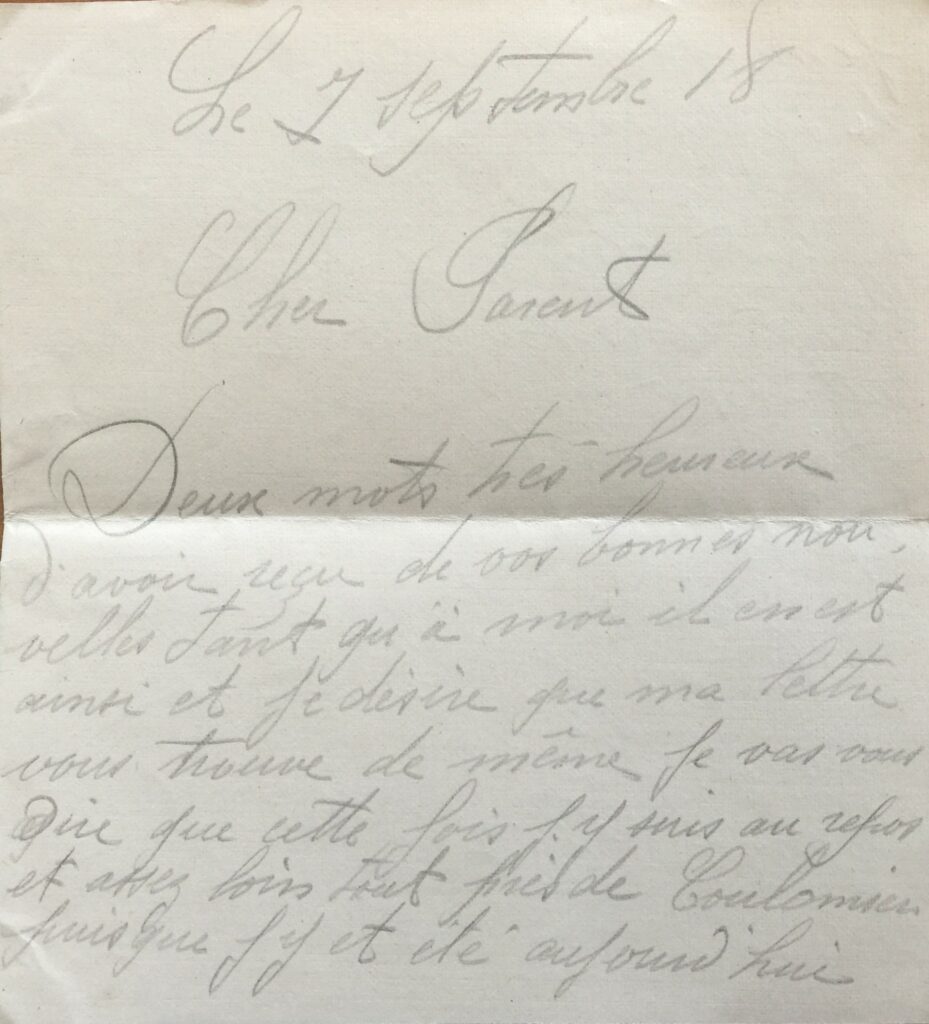 Le 7 septembre 18
Cher Parent
Deux mots très heureux
d'avoir reçu de vos bonnes nou,
velles tant qu'à moi il en est
ainsi et je désire que ma lettre
vous trouve de même je vas vous
dire que cette fois j.y suis au repos
et assez loin tout près de Coulomier
puisque j y et été aujourd'hui